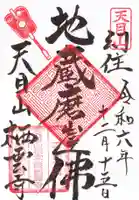 天目山
幻住 令和六年
十二月十五日
地蔵磨崖佛
天目山
栖雲寺